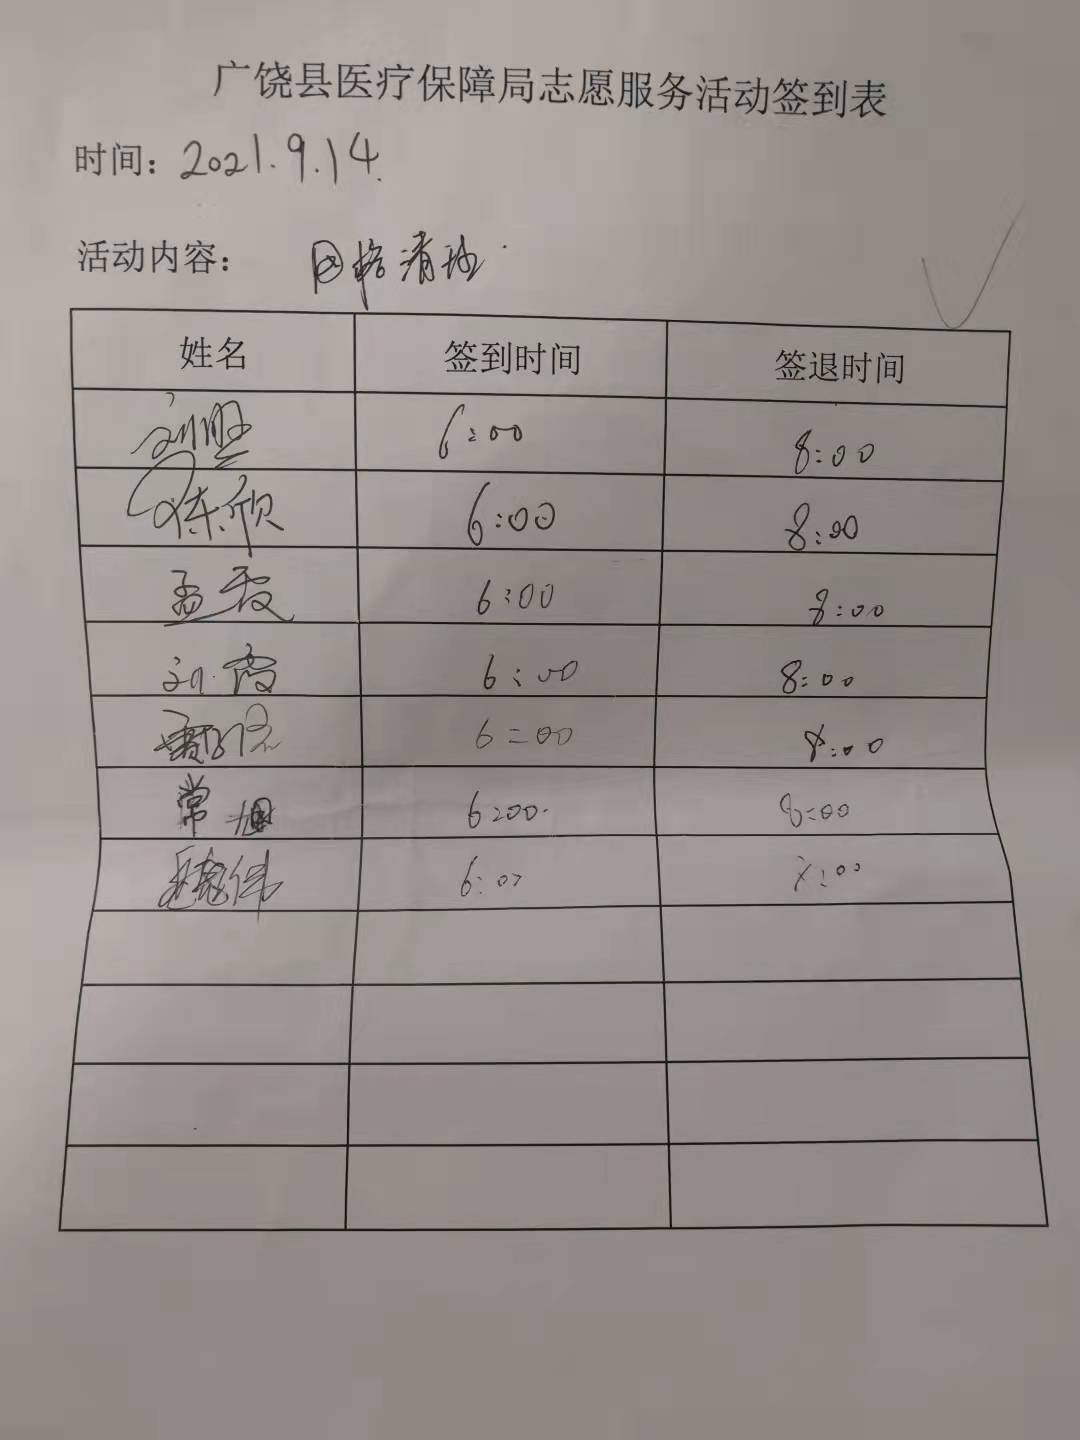 广饶县医疗保障局志愿服务活动签到表
时间：2021.9.14.
活动内容：网格清扫
姓名 签到时间 签退时间
6:00 8:00
陈欣 6:00 8:00
孟霞 6:00 8:00
刘霞 6:00 8:00
6:00 8:00
常旭 6:00 8:00
魏伟 6:00 8:00